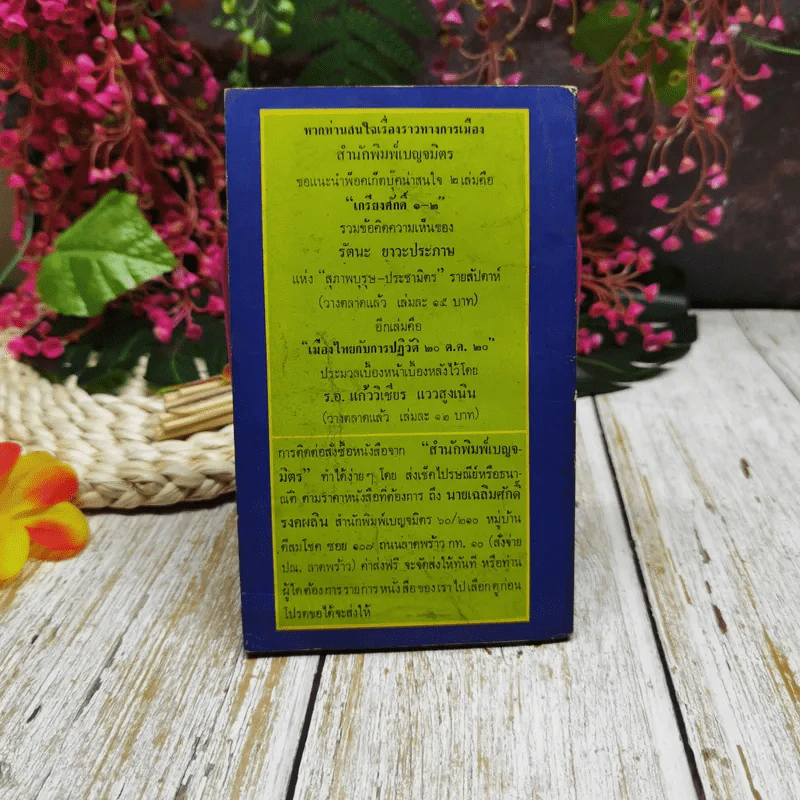 หากท่านสนใจเรื่องราวทางการเมือง
สำนักพิมพ์เบญจมิตร
ขอแนะนำพ็อคเก็ตบุ๊คน่าสนใจ ๒ เล่มคือ
“เกรียงศักดิ์ ๑-๒”
รวมข้อคิดความเห็นของ
รัตนะ ยาวะประภาษ
แห่ง “สุภาพบุรุษ-ประชามิตร” รายสัปดาห์
(วางตลาดแล้ว เล่มละ ๑๕ บาท)
อีกเล่มคือ
“เมืองไทยกับการปฏิวัติ ๒๐ ต.ค. ๒๐”
ประมวลเบื้องหน้าเบื้องหลังไว้โดย
ร.อ. แก้ววิเชียร แววสูงเนิน
(วางตลาดแล้ว เล่มละ ๑๒ บาท)
การติดต่อสั่งซื้อหนังสือจาก “สำนักพิมพ์เบญจ-
มิตร” ทำได้ง่ายๆ โดย ส่งเช็คไปรษณีย์หรือธนา-
ณัติ ตามราคาหนังสือที่ต้องการ ถึง นายเฉลิมศักดิ์
รงคผลิน สำนักพิมพ์เบญจมิตร ๖๐/๒๑๐ หมู่บ้าน
ดีสมโชค ซอย ๑๐๗ ถนนลาดพร้าว กท. ๑๐ (สั่งจ่าย
ปณ. ลาดพร้าว) ค่าส่งฟรี จะจัดส่งให้ทันที หรือท่าน
ผู้ใดต้องการรายการหนังสือของเราไปเลือกดูก่อน
โปรดขอได้จะส่งให้